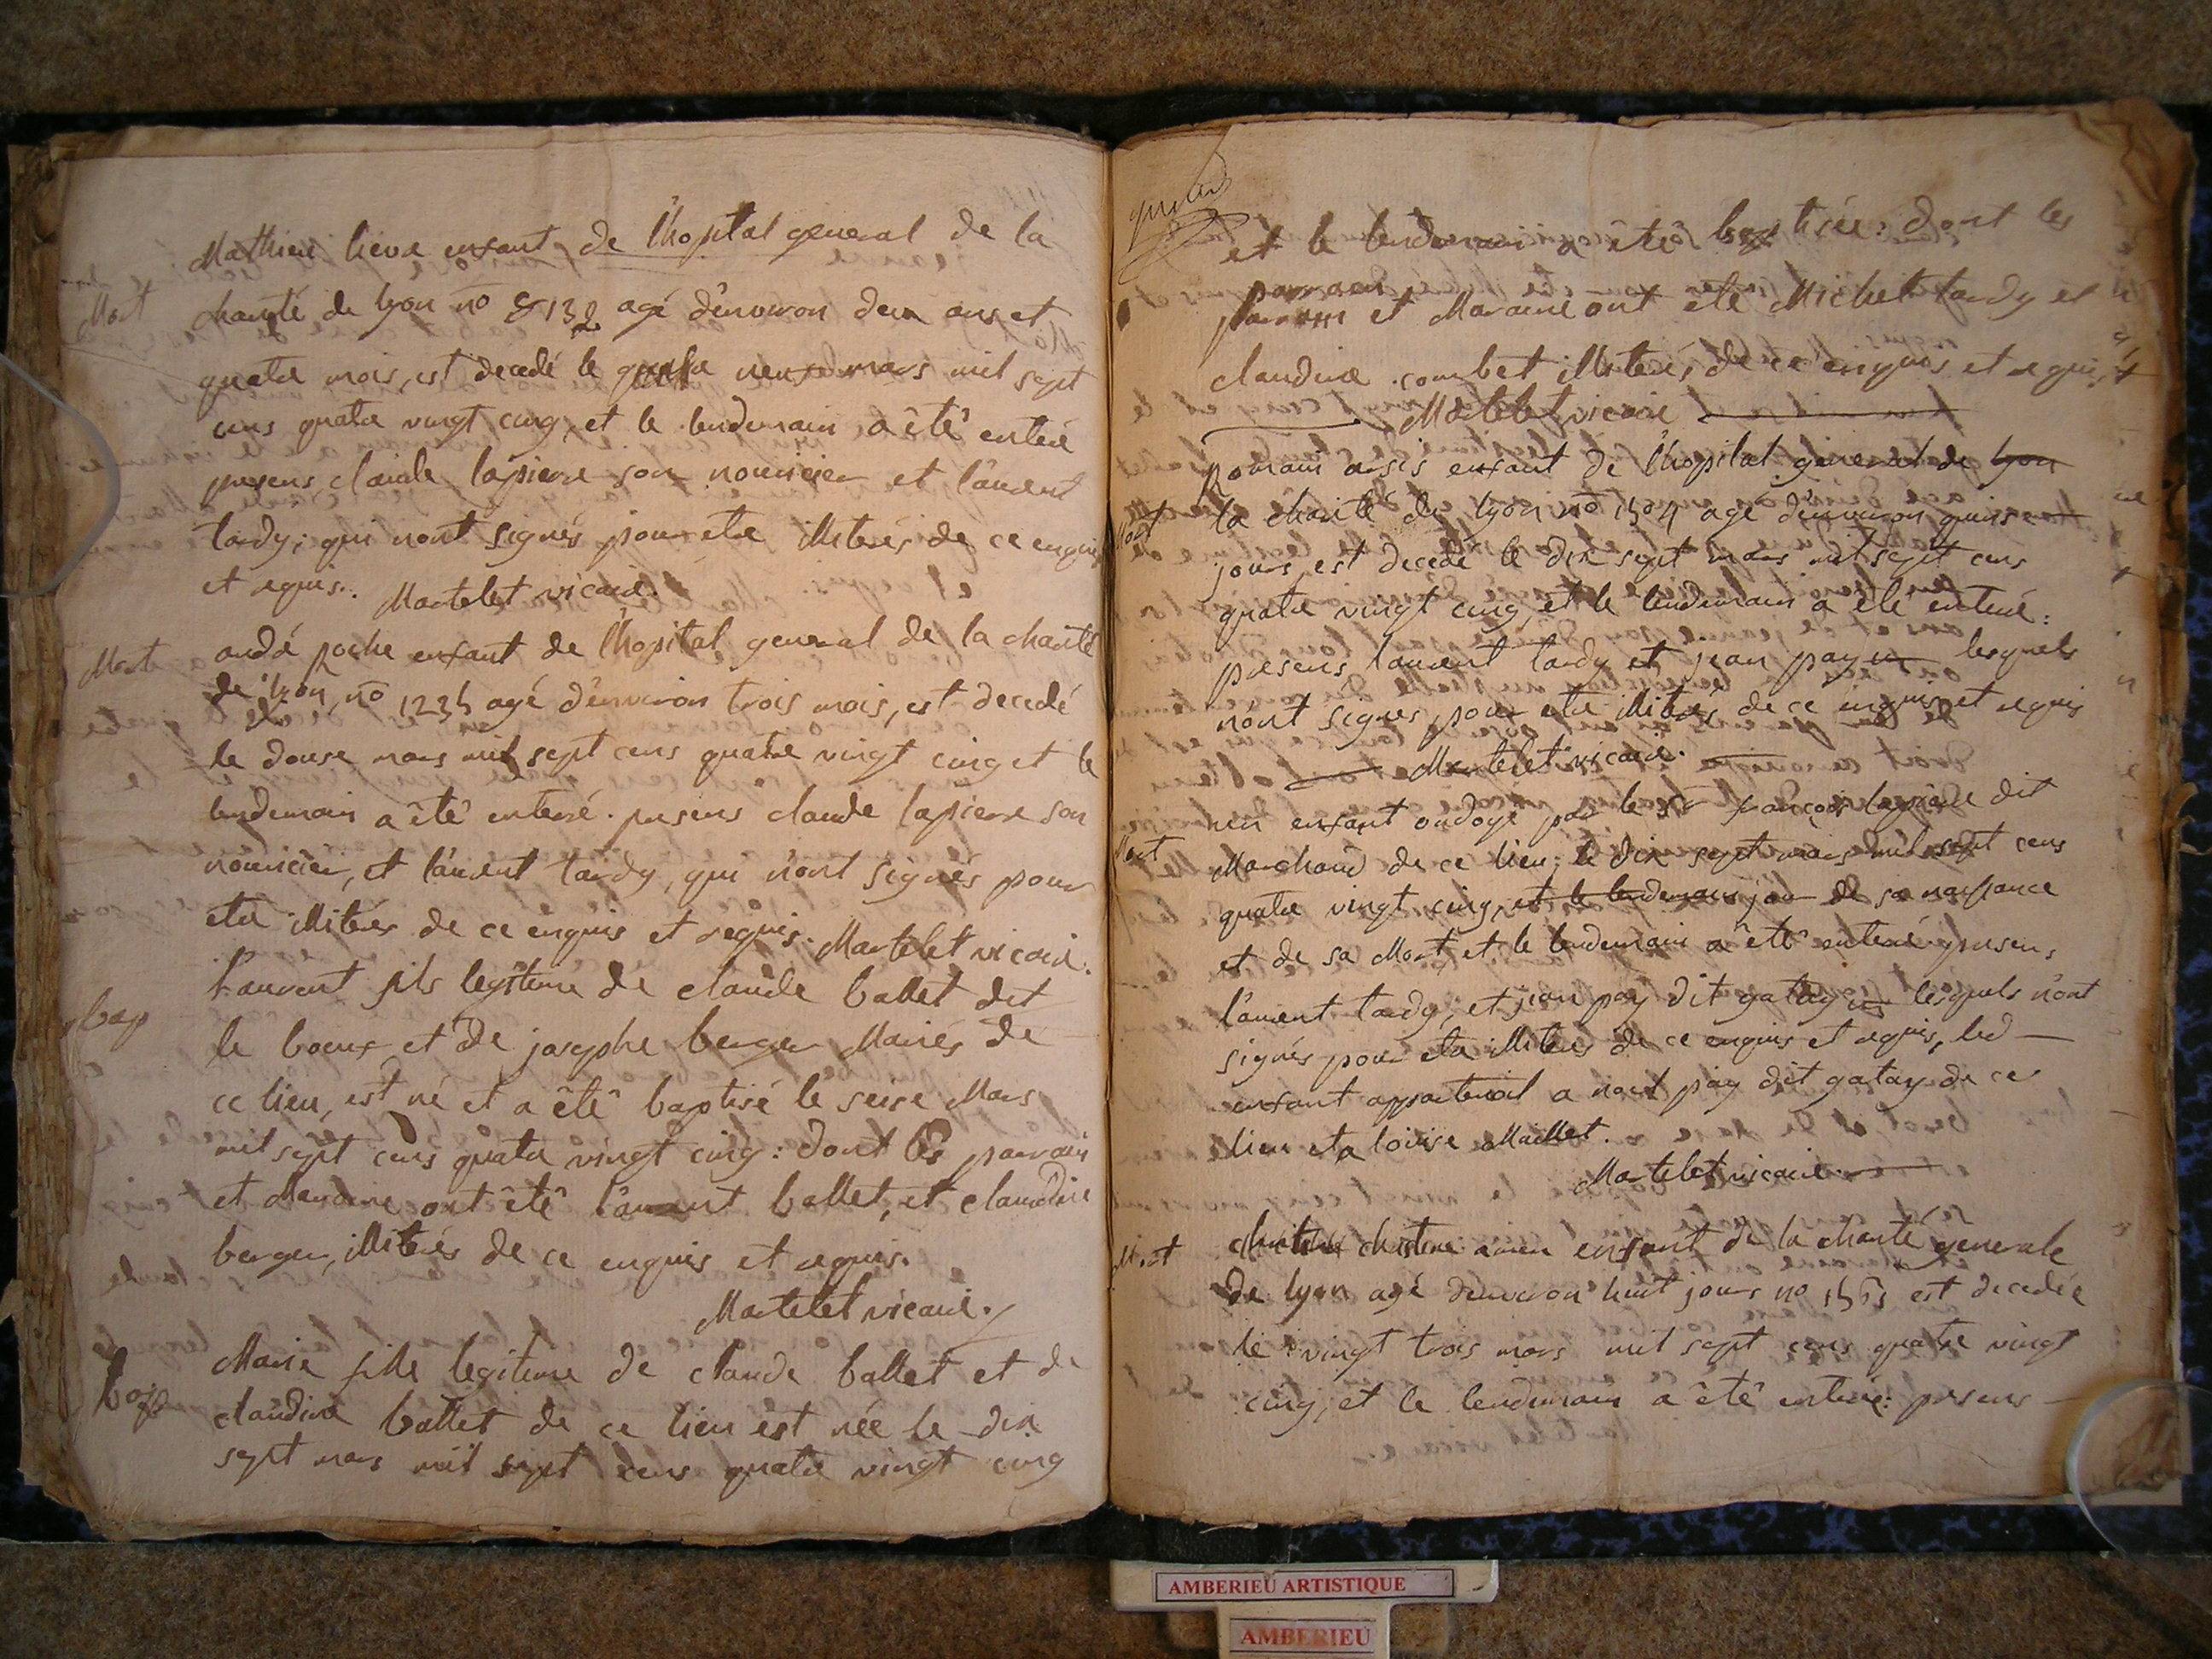 Mathieu lieva enfant de l'hopital general de la
Mort
charité de lyon no 8132 agé d'environ deux ans et
quatre mois, est decedé le neuf mars mil sept
cens quatre vingt cinq, et le lendemain a êté enterré
presens claude lapierre son nouricier et l'aurent
tardy; qui n'ont signés pour etre illiterés de ce enquis
et requis. Martelet vicaire.
Mort
andré poche enfant de l'hopital general de la charité
de lyon, no 1234 agé d'environ trois mois, est decedé
le douse mars mil sept cens quatre vingt cinq et le
lendemain a êté enterré. presens claude lapierre son
nouricier, et l'aurent tardy, qui n'ont signés pour
etre illiterés de ce enquis et requis. Martelet vicaire.
bap
l'aurent fils legitime de claude ballet dit
le boeuf et de josephe berger Mariés de
ce lieu, est né et a êté baptisé le seise Mars
mil sept cens quatre vingt cinq: dont les parrain
et Maraine ont êté l'aurent ballet, et claudine
berger, illiterés de ce enquis et requis.
Martelet vicaire.
bap
Marie fille legitime de claude ballet et de
claudine ballet de ce lieu est née le dix
sept mars mil sept cens quatre vingt cinq
et le lendemain a êté baptisée: dont les
parrain
parrain et Maraine ont eté Michel tardy et
claudine combet illiterés, de ce enquis et requis
Martelet vicaire
romain assis enfant de l'hopital general de lyon
Mort
la charité de lyon no 1504 agé d'environ quinse
jours, est decedé le dix sept mars mil sept cens
quatre vingt cinq, et le lendemain a êté enterré:
presens laurent tardy et jean pay lesquels
n'ont signes pour etre illiterés de ce enquis et requis
Martelet vicaire.
un enfant ondoyé par le sr françois lapierre dit
Mort
Marchand de ce lieu; le dix sept mars mil sept cens
quatre vingt cinq, et le lendemain jour de sa naissance
et de sa Mort et le lendemain a êté enterré presens,
l'aurent tardy, et jean pay dit gatay lesquels n'ont
signés pour etre illiterés de ce enquis et requis, led
enfant appartenoit a noel pay dit gatay de ce
lieu et a loüise Maillet.
Martelet vicaire
Mort
christine enfant de la charité generale
de lyon agé d'environ huit jours no est decedée
le vingt trois mars mil sept cens quatre vingt
cinq, et le lendemain a êté enterrée: presens
AMBERIEU ARTISTIQUE
AMBERIEU